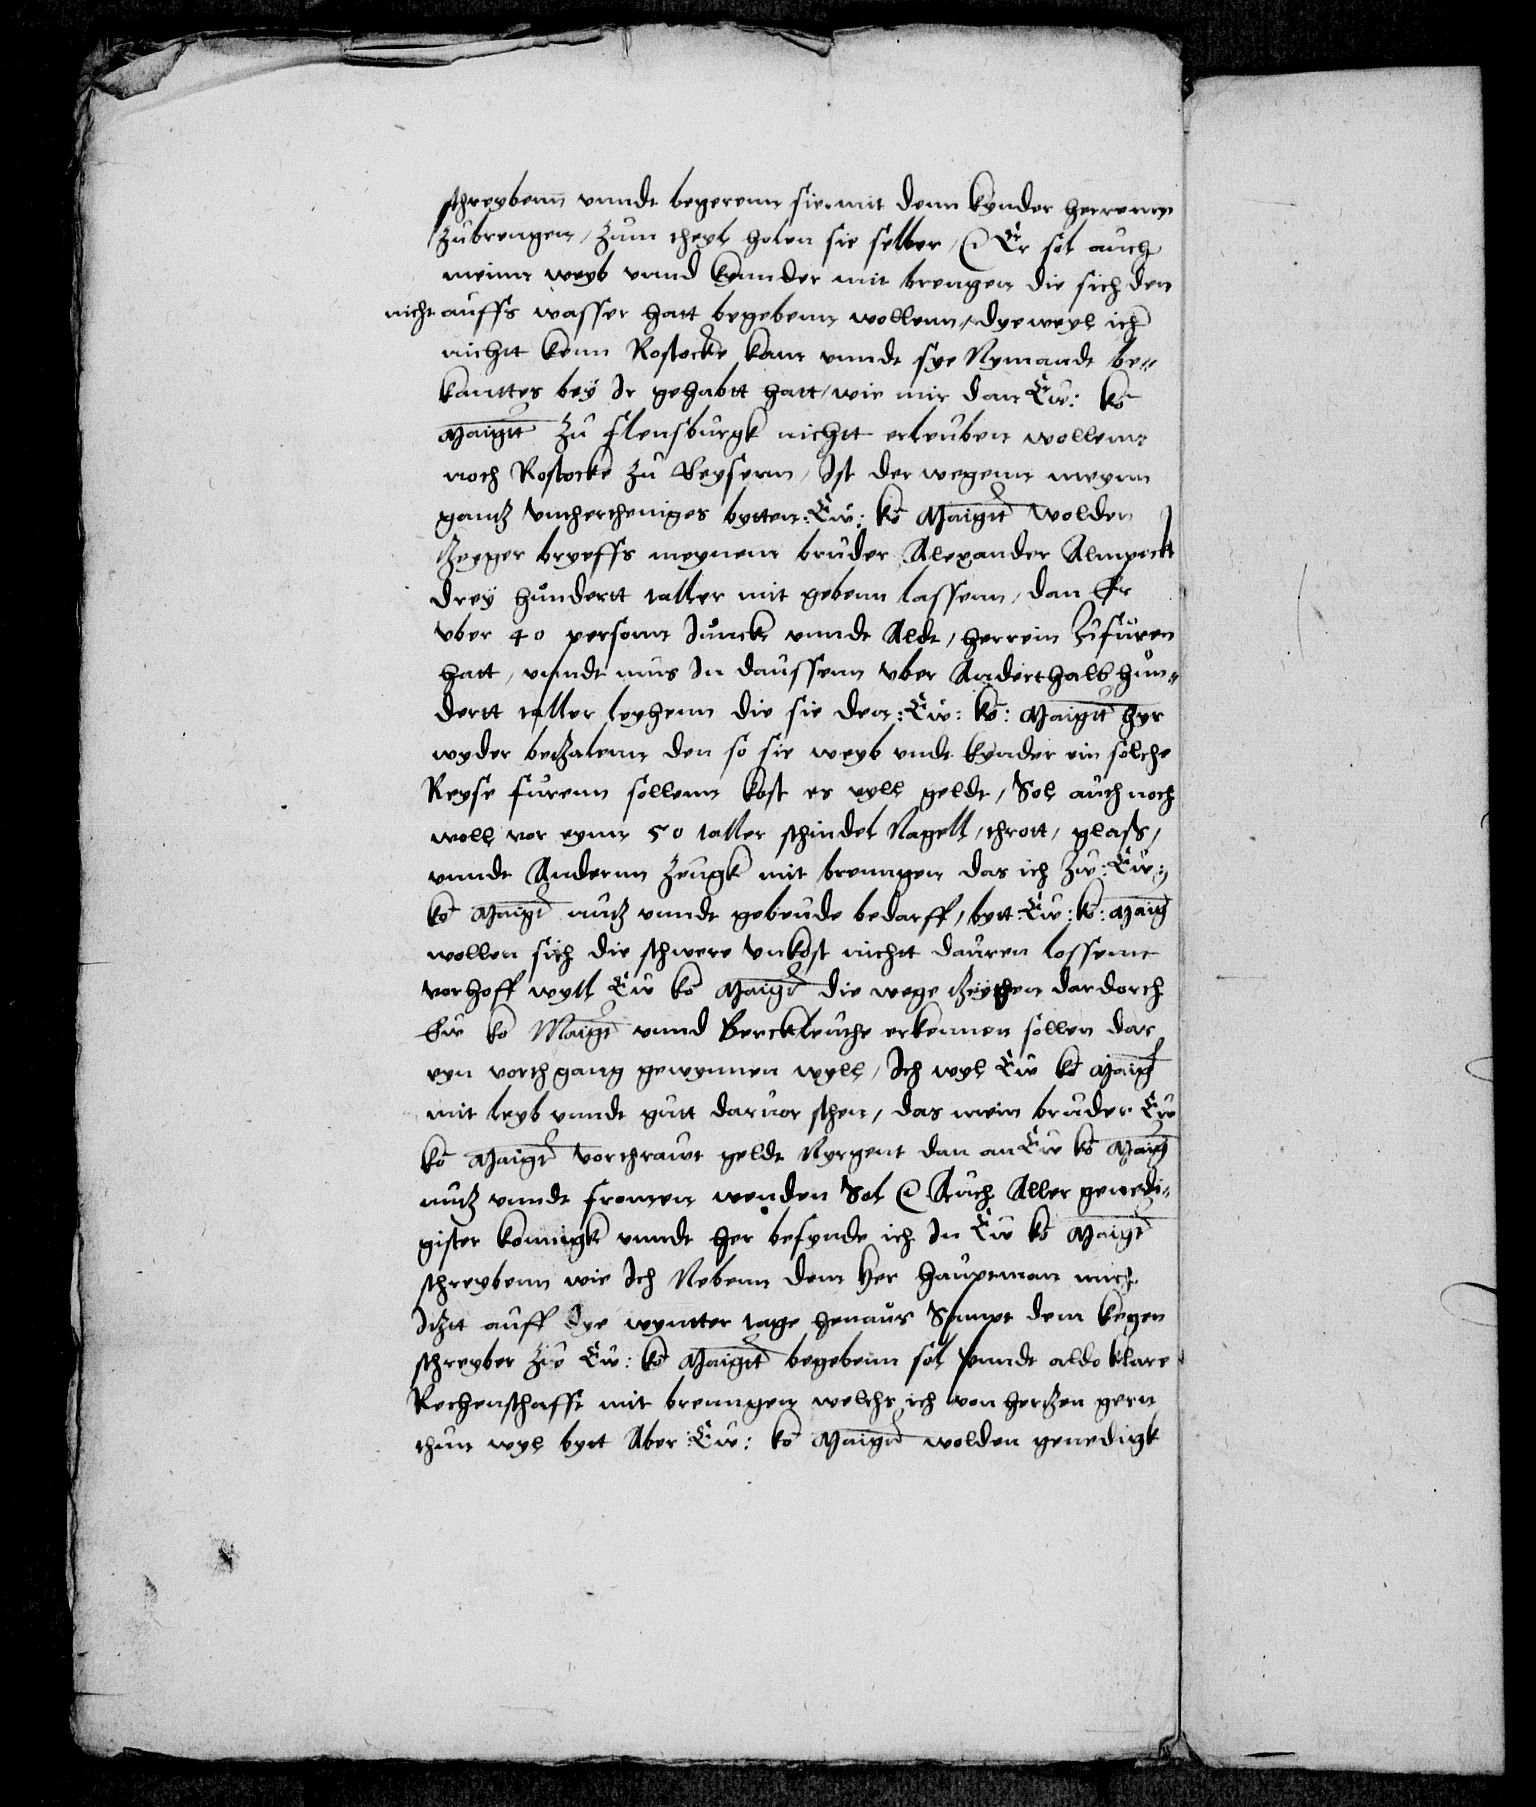 schreybenn vnndt begerenn sie mit denn kynder herrenn
zubrengen, zum theyl holen sie selber, Er sol auch
meinn weyb vnnd kynnder mit brengen die sich den
nicht auffs wasser hatt begebenn wollenn, dyeweyl ich
nichtt kenn Rostocke kam vnndt sye Nymandt be-
kanttes bey Ir gehabtt hatt, wie mir dan Ew: ko
Maigtt zu flensburgk nichtt erleuben wollenn
noch Rostocke zu Reysenn, Ist der wegenn meynn
gantz vnthertheniges bytten: Ew: ko Maigtt wolden
Zeyger bryeffs meynenn bruder Alexander Almpeck
drey hundertt taller mit gebenn lassenn, dan Er
vber 40 personn Iunck vnndt Aldt, herrein zufuren
hatt, vnndt mus In daussenn vber Anderthalb hun-
dertt taller leyhenn die sie den: Ew: ko: Maigtt hyr
wyder betzalenn den so sie weyb vndt kynder ein solche
Reyse furenn sollenn kost es vyll geldt, Sol auch noch
woll vor eynn 50 taller schindel Nagell, thrott, glass,
vnndt Andernn zeugk mit brenngen das ich zu: Ew:
ko Maigt nutz vnndt gebeude bedarff, bytt Ew: ko: Maig
wollen sich die schwere vnkost nichtt dauren lossenn
vorhoff wyll Ew ko Maigt die wege tzeychen dardorch
Ew ko Maigt vnnd Berckleuthe erkennen sollen das
eyn vorthgang gewynnen wyll, Ich wyl Ew ko Maigt
mit leyb vnndt gutt daruor sthen, das mein bruder Ew
ko Maigt vorthrawt geldt Nyrgent dan an Ew ko Maig
nutz vnndt fromen wenden Sol Auch Aller genedi-
gister konnigk vnndt her befynde ich In Ew ko Maigt
schreybenn wie Ich Nebenn dem Her Hauptman mich
Itztt auff dye wynter tage henaus Sampt dem kegen
schreyber zu Ew: ko Maigtt begebenn sol vnndt aldo klare
Rechenschafft mit brenngen welchs ich von hertzen gern
thun wyl bytt Aber Ew: ko Maigtt wolden genedigk